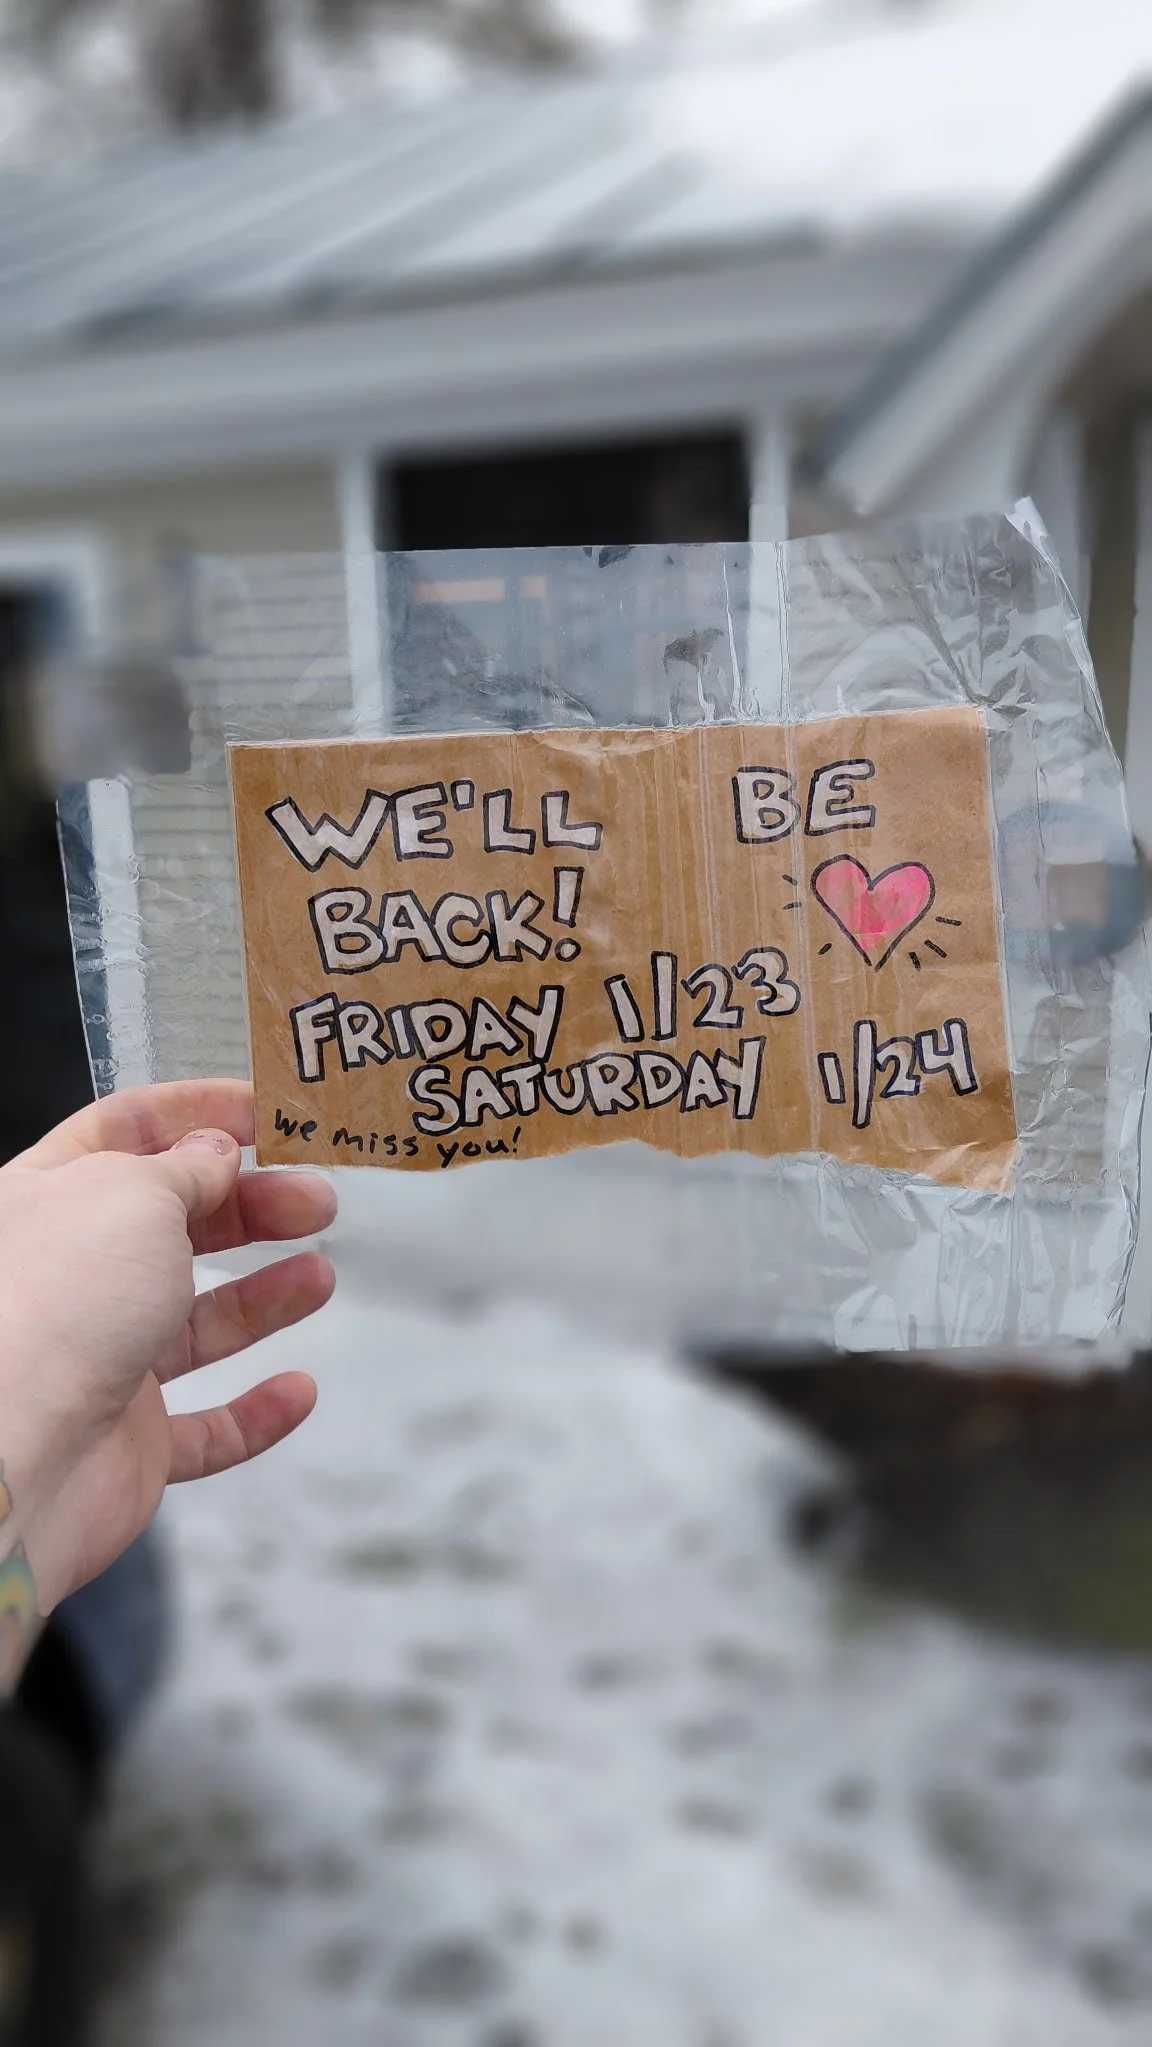 WE'LL BE
BACK!
FRIDAY 1/23
SATURDAY 1/24
We miss you!